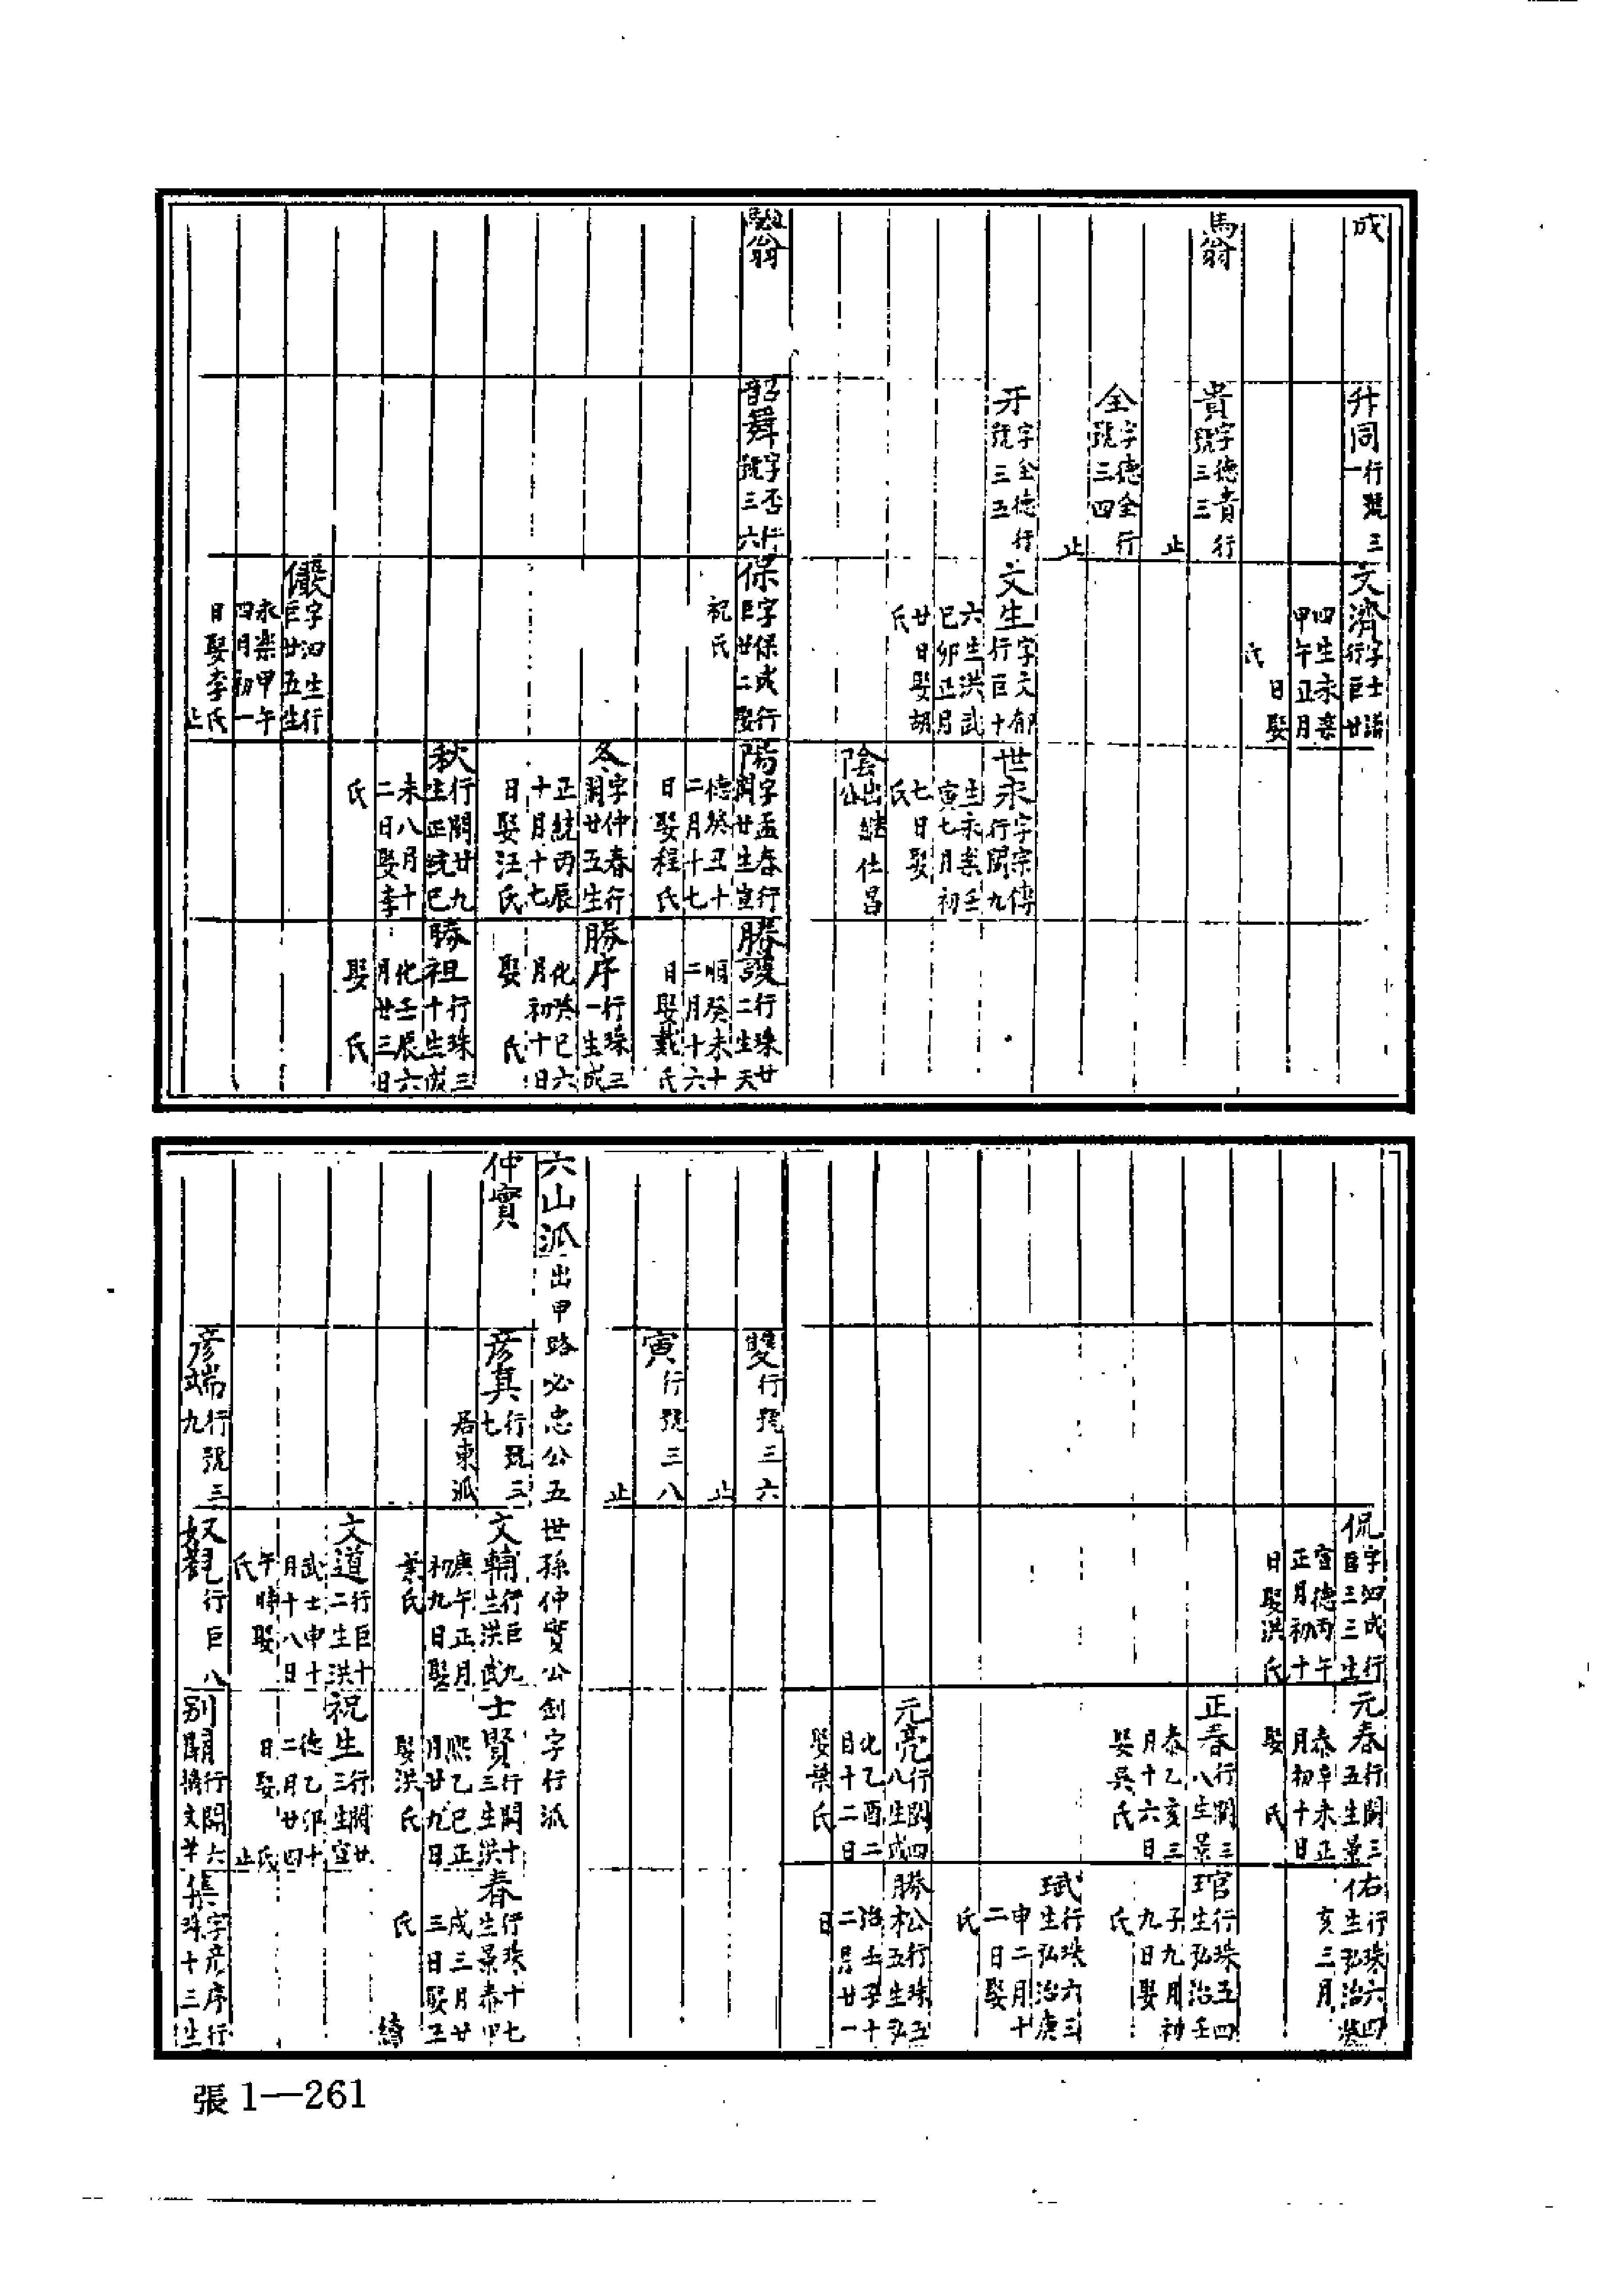 成
升同行號三一
文濟字士謙行巨廿四生永樂甲午正月 日娶 氏
馬翁
貴字德貴行號三三 止
全字德全行號三四 止
开字全德行號三五
文生字文郁行巨十六生洪武己卯正月廿日娶胡氏
世永字宗傳行閏九生永樂壬寅七月初七日娶 氏
陰出繼仕昌公
翁
韶舞字否行號三六
保字保成行巨廿二娶祝氏
陽字孟春行閏廿生宣德癸丑十二月十七日娶程氏
勝護行珠廿二生天順癸未十二月十六日娶戴氏
冬字仲春行閏廿五生正統丙辰十月十七日娶汪氏
勝序行珠三一生成化癸巳六月初十日娶 氏
秋行閏廿九生正統己未八月十二日娶李氏
勝祖行珠三十生成化壬辰六月廿三日娶 氏
儼字泗生行巨廿五生永樂甲午四月初一日娶李氏 止
侃字泗成行巨三三生宣德丙午正月初十日娶洪氏
元春行閏三五生景泰辛未正月初十日娶 氏
佑行珠六四生弘治癸亥三月
正春行閏三八生景泰乙亥三月十六日娶吳氏
琯行珠五四生弘治壬子九月初九日娶 氏
珷行珠六三生弘治庚申二月十二日娶 氏
元亮行閏四八生成化乙酉二月十二日娶葉氏
勝公行珠五五生弘治壬子十二月廿一日
雙行號三六 止
寅行號三八 止
六山派出甲路必忠公五世孫仲實公劍字行派
仲實
彥真行號三七居東派
文輔行巨九生洪武庚午正月初九日娶葉氏
士賢行閏十三生洪熙乙巳正月廿九日娶洪氏
春行珠十七生景泰甲戌三月廿三日娶王氏
續
文道行巨十二生洪武壬申十月十八日午時娶 氏
祝生行閏廿三生宣德乙卯十二月廿四日娶 氏 止
彥端行號三九
奴觀行巨八
別閏行閏六
集字彥序行珠十三生
張 1—261